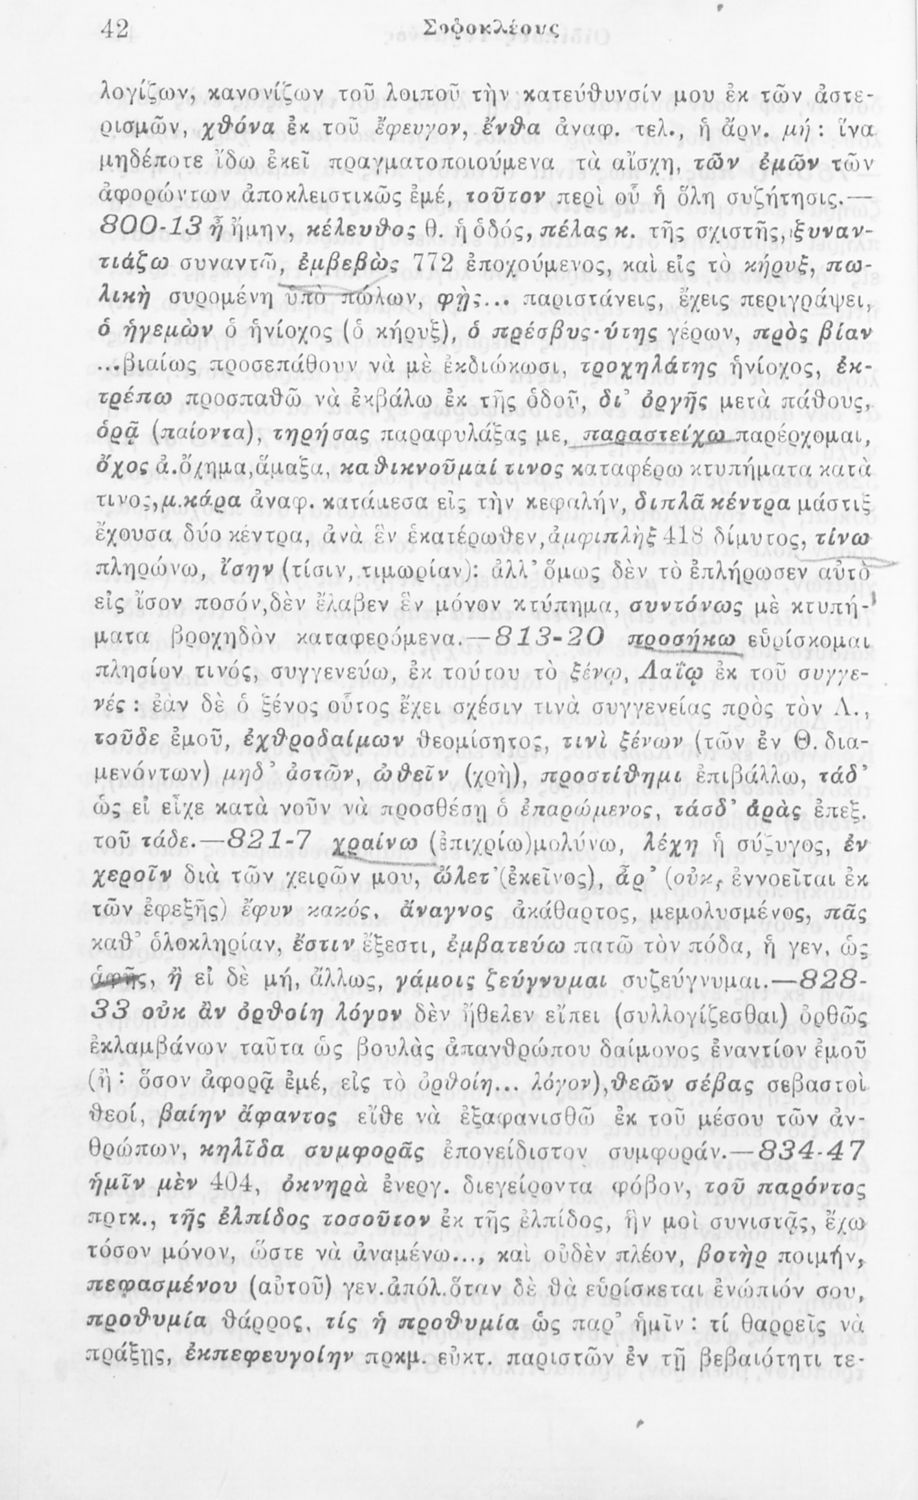 42
Σοφοκλέους
λογίζων, κανονίζων τοῦ λοιποῦ τὴν κατεύθυνσίν μου ἐκ τῶν ἀστε-
ρισμῶν, χθόνα ἐκ τοῦ ἔφευγον, ἔνθα ἀναφ. τελ., ἡ ἄρν. μή : ἵνα
μηδέποτε ἴδω ἐκεῖ πραγματοποιούμενα τὰ αἴσχη, τῶν ἐμῶν τῶν
ἀφορώντων ἀποκλειστικῶς ἐμέ, τοῦτον περὶ οὗ ἡ ὅλη συζήτησις.—
800-13 ἦ ἤμην, κέλευθος θ. ἡ ὁδός, πέλας κ. τῆς σχιστῆς, ξυναν-
τιάζω συναντῶ, ἐμβεβὼς 772 ἐποχούμενος, καὶ εἰς τὸ κήρυξ, πω-
λικὴ συρομένη ὑπὸ πώλων, φῂς... παριστάνεις, ἔχεις περιγράψει,
ὁ ἡγεμὼν ὁ ἡνίοχος (ὁ κήρυξ), ὁ πρέσβυς·ύτης γέρων, πρὸς βίαν
...βιαίως προσεπάθουν νὰ μὲ ἐκδιώκωσι, τροχηλάτης ἡνίοχος, ἐκ-
τρέπω προσπαθῶ νὰ ἐκβάλω ἐκ τῆς ὁδοῦ, δι' ὀργῆς μετὰ πάθους,
ὁρᾷ (παίοντα), τηρήσας παραφυλάξας με, παραστείχω παρέρχομαι,
ὄχος ἀ.ὄχημα,ἅμαξα, καθικνοῦμαί τινος καταφέρω κτυπήματα κατά
τινος,μ.κάρα ἀναφ. κατάμεσα εἰς τὴν κεφαλήν, διπλᾶ κέντρα μάστιξ
ἔχουσα δύο κέντρα, ἀνὰ ἓν ἑκατέρωθεν,ἀμφιπλὴξ 418 δίμυτος, τίνω
πληρώνω, ἴσην (τίσιν, τιμωρίαν): ἀλλ' ὅμως δὲν τὸ ἐπλήρωσεν αὐτὸ
εἰς ἴσον ποσόν,δὲν ἔλαβεν ἓν μόνον κτύπημα, συντόνως μὲ κτυπή-
ματα βροχηδὸν καταφερόμενα.—813-20 προσήκω εὑρίσκομαι
πλησίον τινός, συγγενεύω, ἐκ τούτου τὸ ξένῳ, Λαΐῳ ἐκ τοῦ συγγε-
νές : ἐὰν δὲ ὁ ξένος οὗτος ἔχει σχέσιν τινὰ συγγενείας πρὸς τὸν Λ.,
τοῦδε ἐμοῦ, ἐχθροδαίμων θεομίσητος, τινὶ ξένων (τῶν ἐν Θ. δια-
μενόντων) μηδ' ἀστῶν, ὠθεῖν (χρὴ), προστίθημι ἐπιβάλλω, τάδ'
ὡς εἰ εἶχε κατὰ νοῦν νὰ προσθέσῃ ὁ ἐπαρώμενος, τάσδ' ἀρὰς ἐπεξ.
τοῦ τάδε.—821-7 χραίνω (ἐπιχρίω)μολύνω, λέχη ἡ σύζυγος, ἐν
χεροῖν διὰ τῶν χειρῶν μου, ὤλετ' (ἐκεῖνος), ἆρ' (οὐκ, ἐννοεῖται ἐκ
τῶν ἐφεξῆς) ἔφυν κακός, ἄναγνος ἀκάθαρτος, μεμολυσμένος, πᾶς
καθ' ὁλοκληρίαν, ἔστιν ἔξεστι, ἐμβατεύω πατῶ τὸν πόδα, ἡ γεν. ὡς
ἁφῆς, ἢ εἰ δὲ μή, ἄλλως, γάμοις ζεύγνυμαι συζεύγνυμαι.—828-
33 οὐκ ἂν ὀρθοίη λόγον δὲν ἤθελεν εἴπει (συλλογίζεσθαι) ὀρθῶς
ἐκλαμβάνων ταῦτα ὡς βουλὰς ἀπανθρώπου δαίμονος ἐναντίον ἐμοῦ
(ἢ : ὅσον ἀφορᾷ ἐμέ, εἰς τὸ ὀρθοίη... λόγον),θεῶν σέβας σεβαστοὶ
θεοί, βαίην ἄφαντος εἴθε νὰ ἐξαφανισθῶ ἐκ τοῦ μέσου τῶν ἀν-
θρώπων, κηλῖδα συμφορᾶς ἐπονείδιστον συμφοράν.—834-47
ἡμῖν μὲν 404, ὀκνηρὰ ἐνεργ. διεγείροντα φόβον, τοῦ παρόντος
πρτκ., τῆς ἐλπίδος τοσοῦτον ἐκ τῆς ἐλπίδος, ἣν μοὶ συνιστᾷς, ἔχω
τόσον μόνον, ὥστε νὰ ἀναμένω..., καὶ οὐδὲν πλέον, βοτὴρ ποιμήν,
πεφασμένου (αὐτοῦ) γεν.ἀπόλ.ὅταν δὲ θὰ εὑρίσκεται ἐνώπιόν σου,
προθυμία θάρρος, τίς ἡ προθυμία ὡς παρ' ἡμῖν : τί θαρρεῖς νὰ
πράξῃς, ἐκπεφευγοίην πρκμ. εὐκτ. παριστῶν ἐν τῇ βεβαιότητι τε-